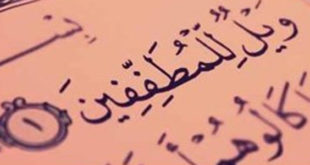 وَيْلٌ لِّلْمُطَفِّفِينَ ١
كَالُوهُمْ